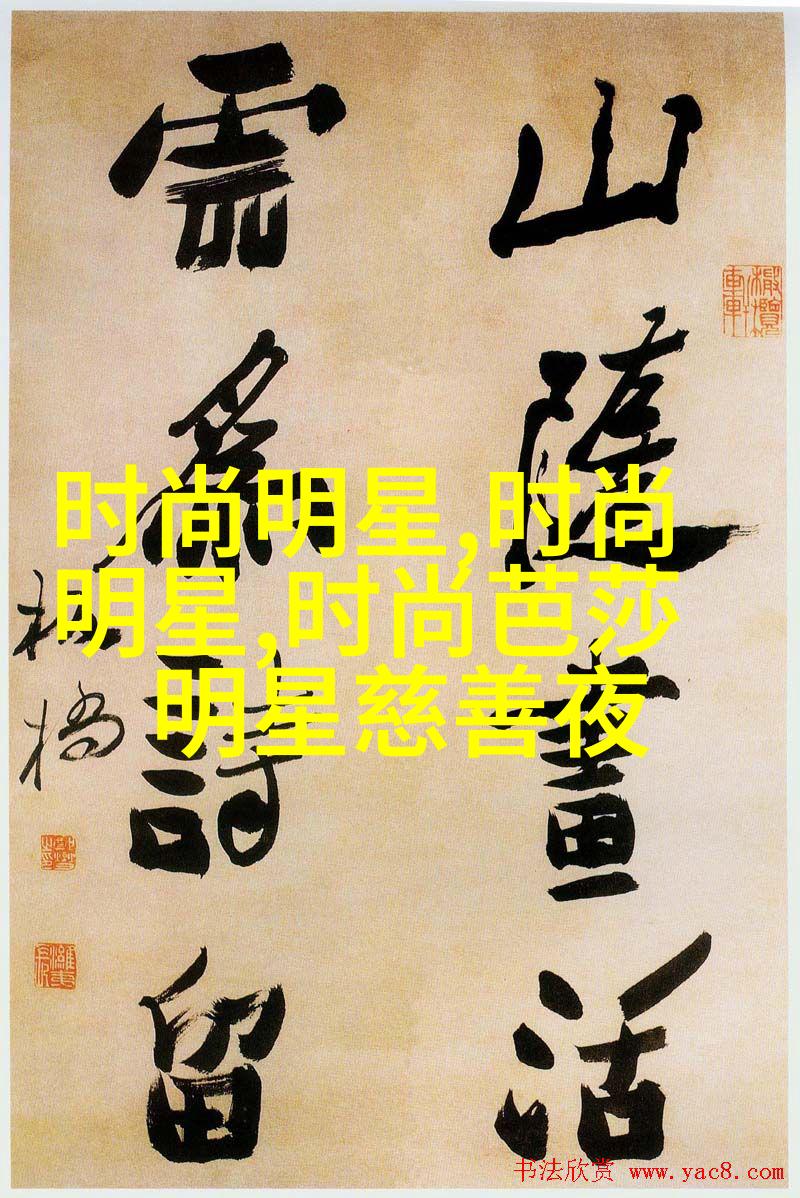 山隨畫活
雲爲詩留
板橋
时尚明星,时尚
明星,时尚芭莎
明星慈善夜
书法欣赏 www.yac8.com